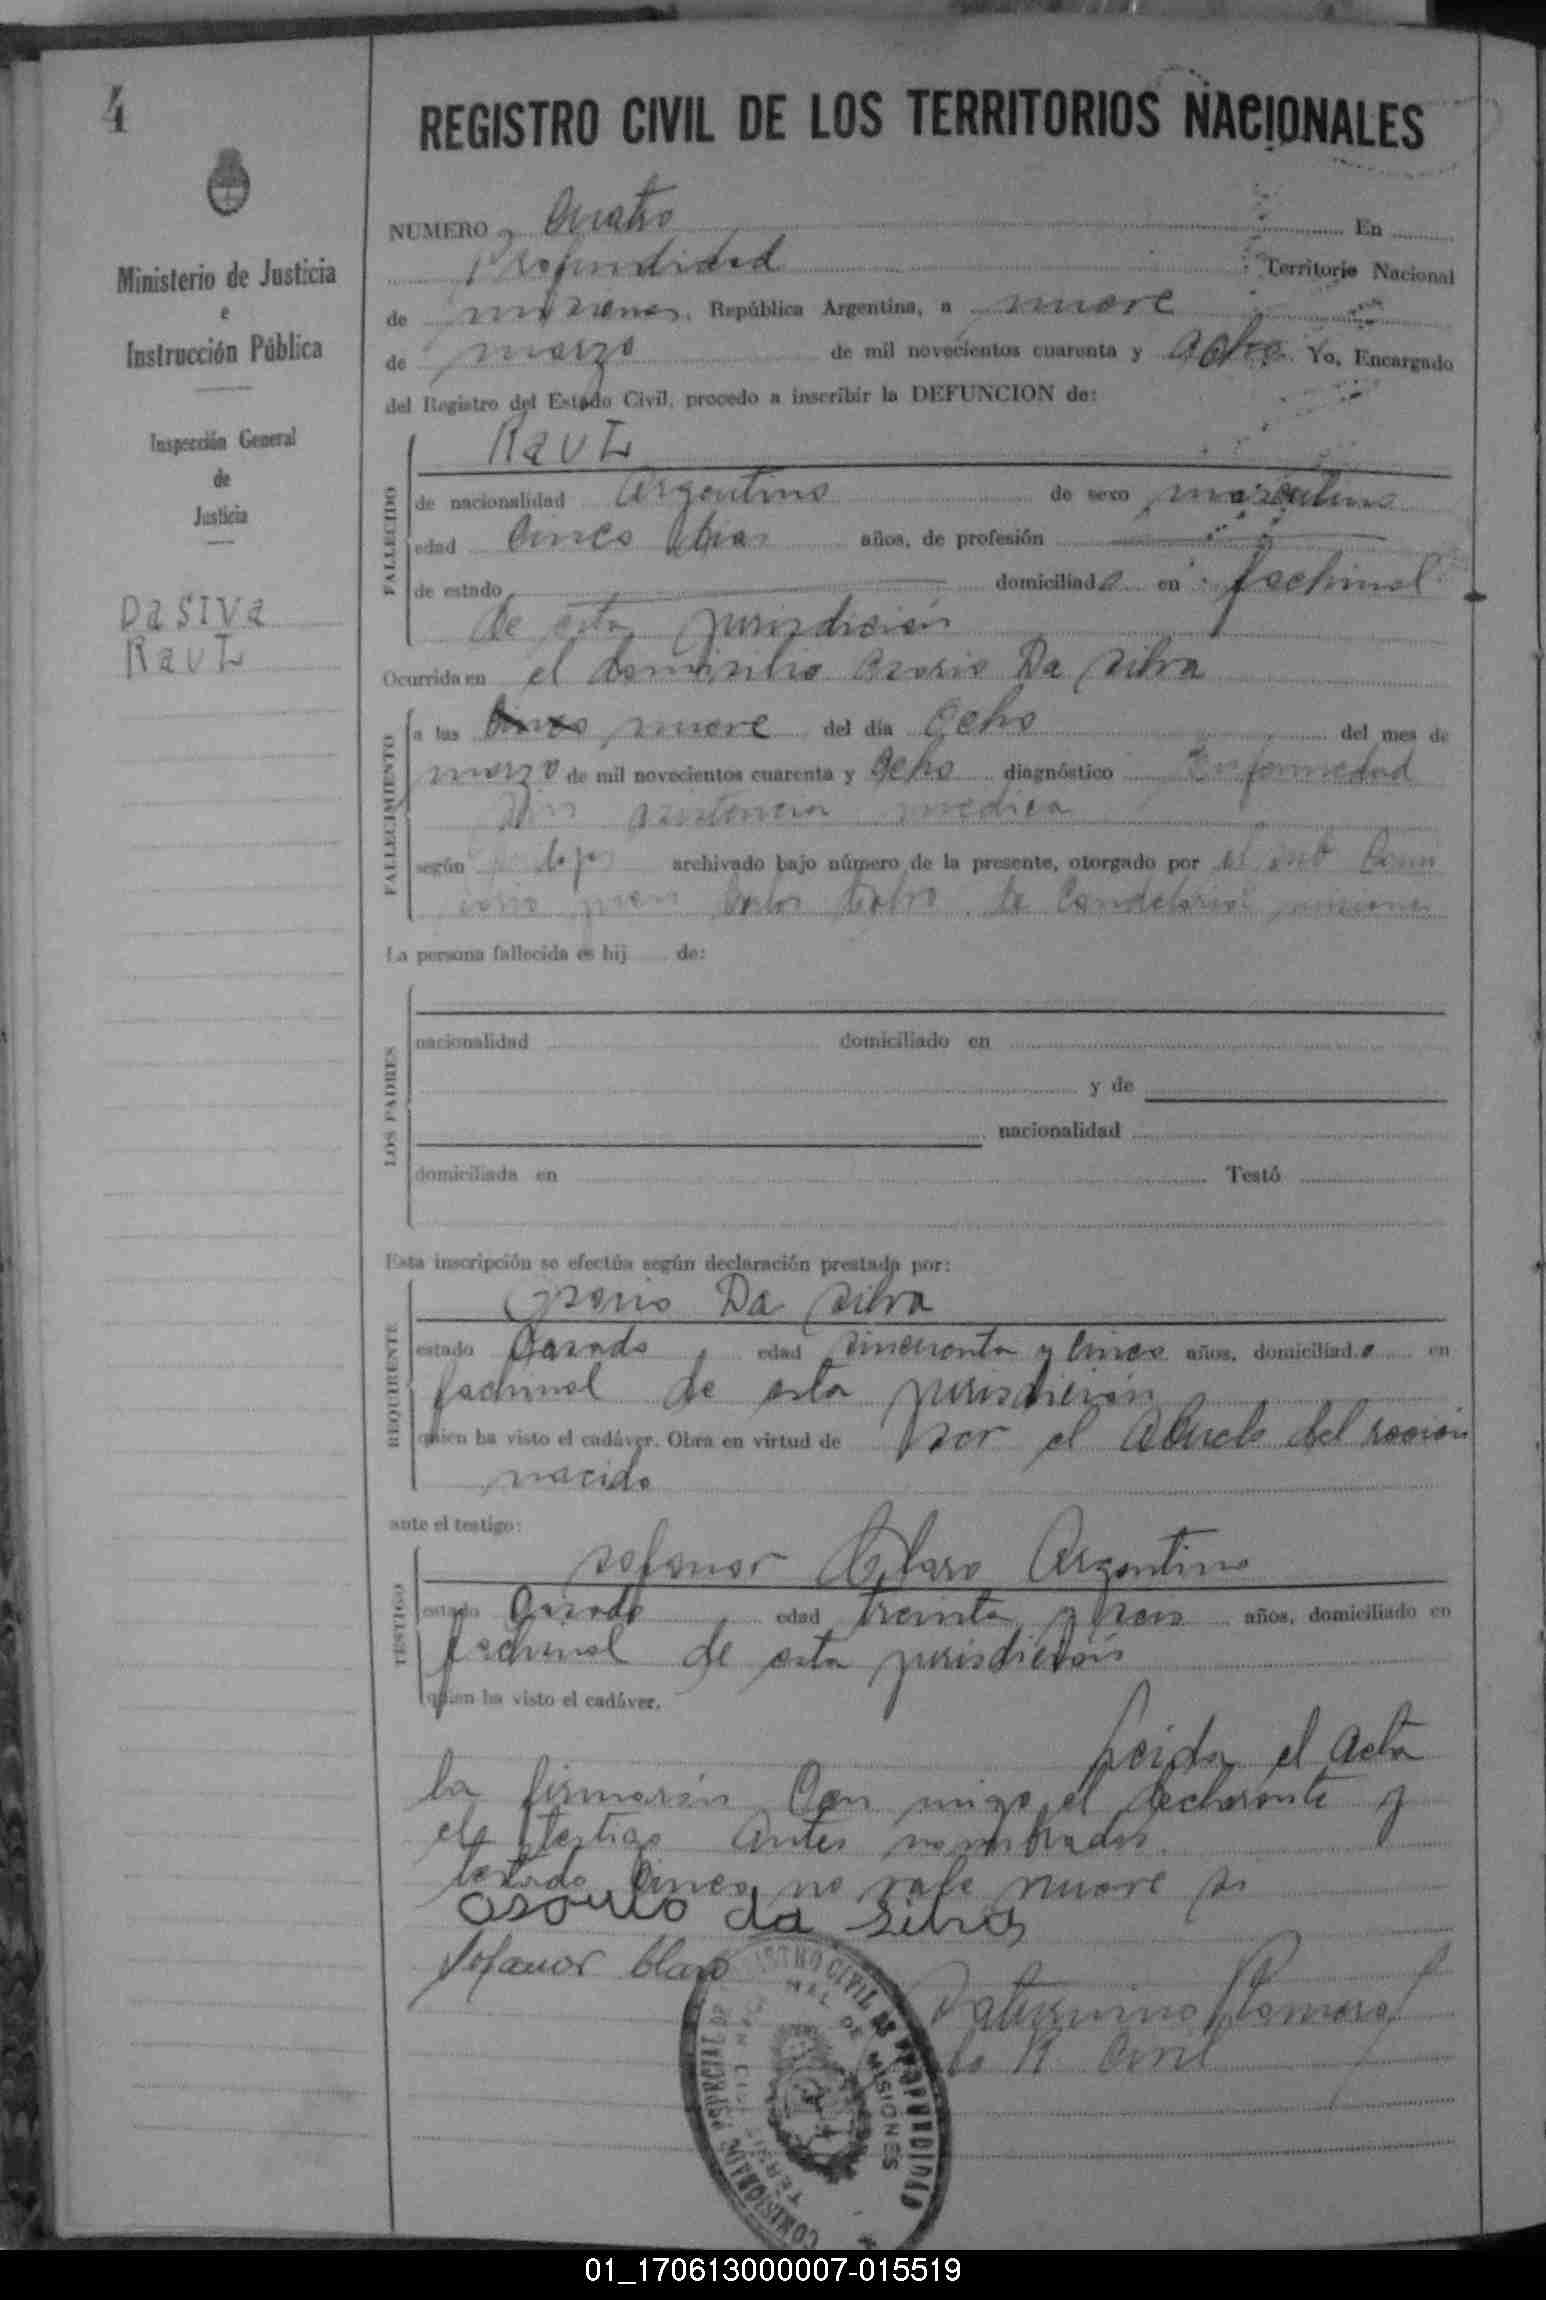 4
REGISTRO CIVIL DE LOS TERRITORIOS NACIONALES
Ministerio de Justicia
e
Instrucción Pública
Inspección General
de
Justicia
Da SIVa
RauL
NUMERO Cuatro En
Profundidad Territorio Nacional
de misiones, República Argentina, a nueve
de marzo de mil novecientos cuarenta y ocho Yo, Encargado
del Registro del Estado Civil, procedo a inscribir la DEFUNCION de:
FALLECIDO
RauL
de nacionalidad Argentino de sexo masculino
edad Cinco dias años, de profesión
de estado domiciliado en fachinal
de esta jurisdición
Ocurrida en el domisilio Osorio Da Silva
FALLECIMIENTO
a las Cinco nueve del día Ocho del mes de
marzo de mil novecientos cuarenta y Ocho diagnóstico Enfermedad
sin asistencia medica
según archivado bajo número de la presente, otorgado por el
Carlos de Candelaria misiones
La persona fallecida es hij de:
LOS PADRES
nacionalidad domiciliado en
y de
nacionalidad
domiciliada en Testó
Esta inscripción se efectúa según declaración prestada por:
REQUIRENTE
Osorio Da Silva
estado Casado edad sincuenta y cinco años, domiciliado en
fachinal de esta jurisdición
quien ha visto el cadáver. Obra en virtud de ser el Abuelo del resien
nacido
ante el testigo:
TESTIGO
Sofanor Claro Argentino
estado Casado edad treinta y seis años, domiciliado en
fachinal de esta jurisdición
quien ha visto el cadáver.
Leida el Acta
la firmarán Con migo el declarante y
el testigo Antes nombrados.
testado Cinco no vale nueve si
osorio da silva
Sofanor Claro
Saturnino
R. Civil
COMISIONADO ESPECIAL DE REGISTRO CIVIL DE PROFUNDIDAD
MISIONES
01_170613000007-015519